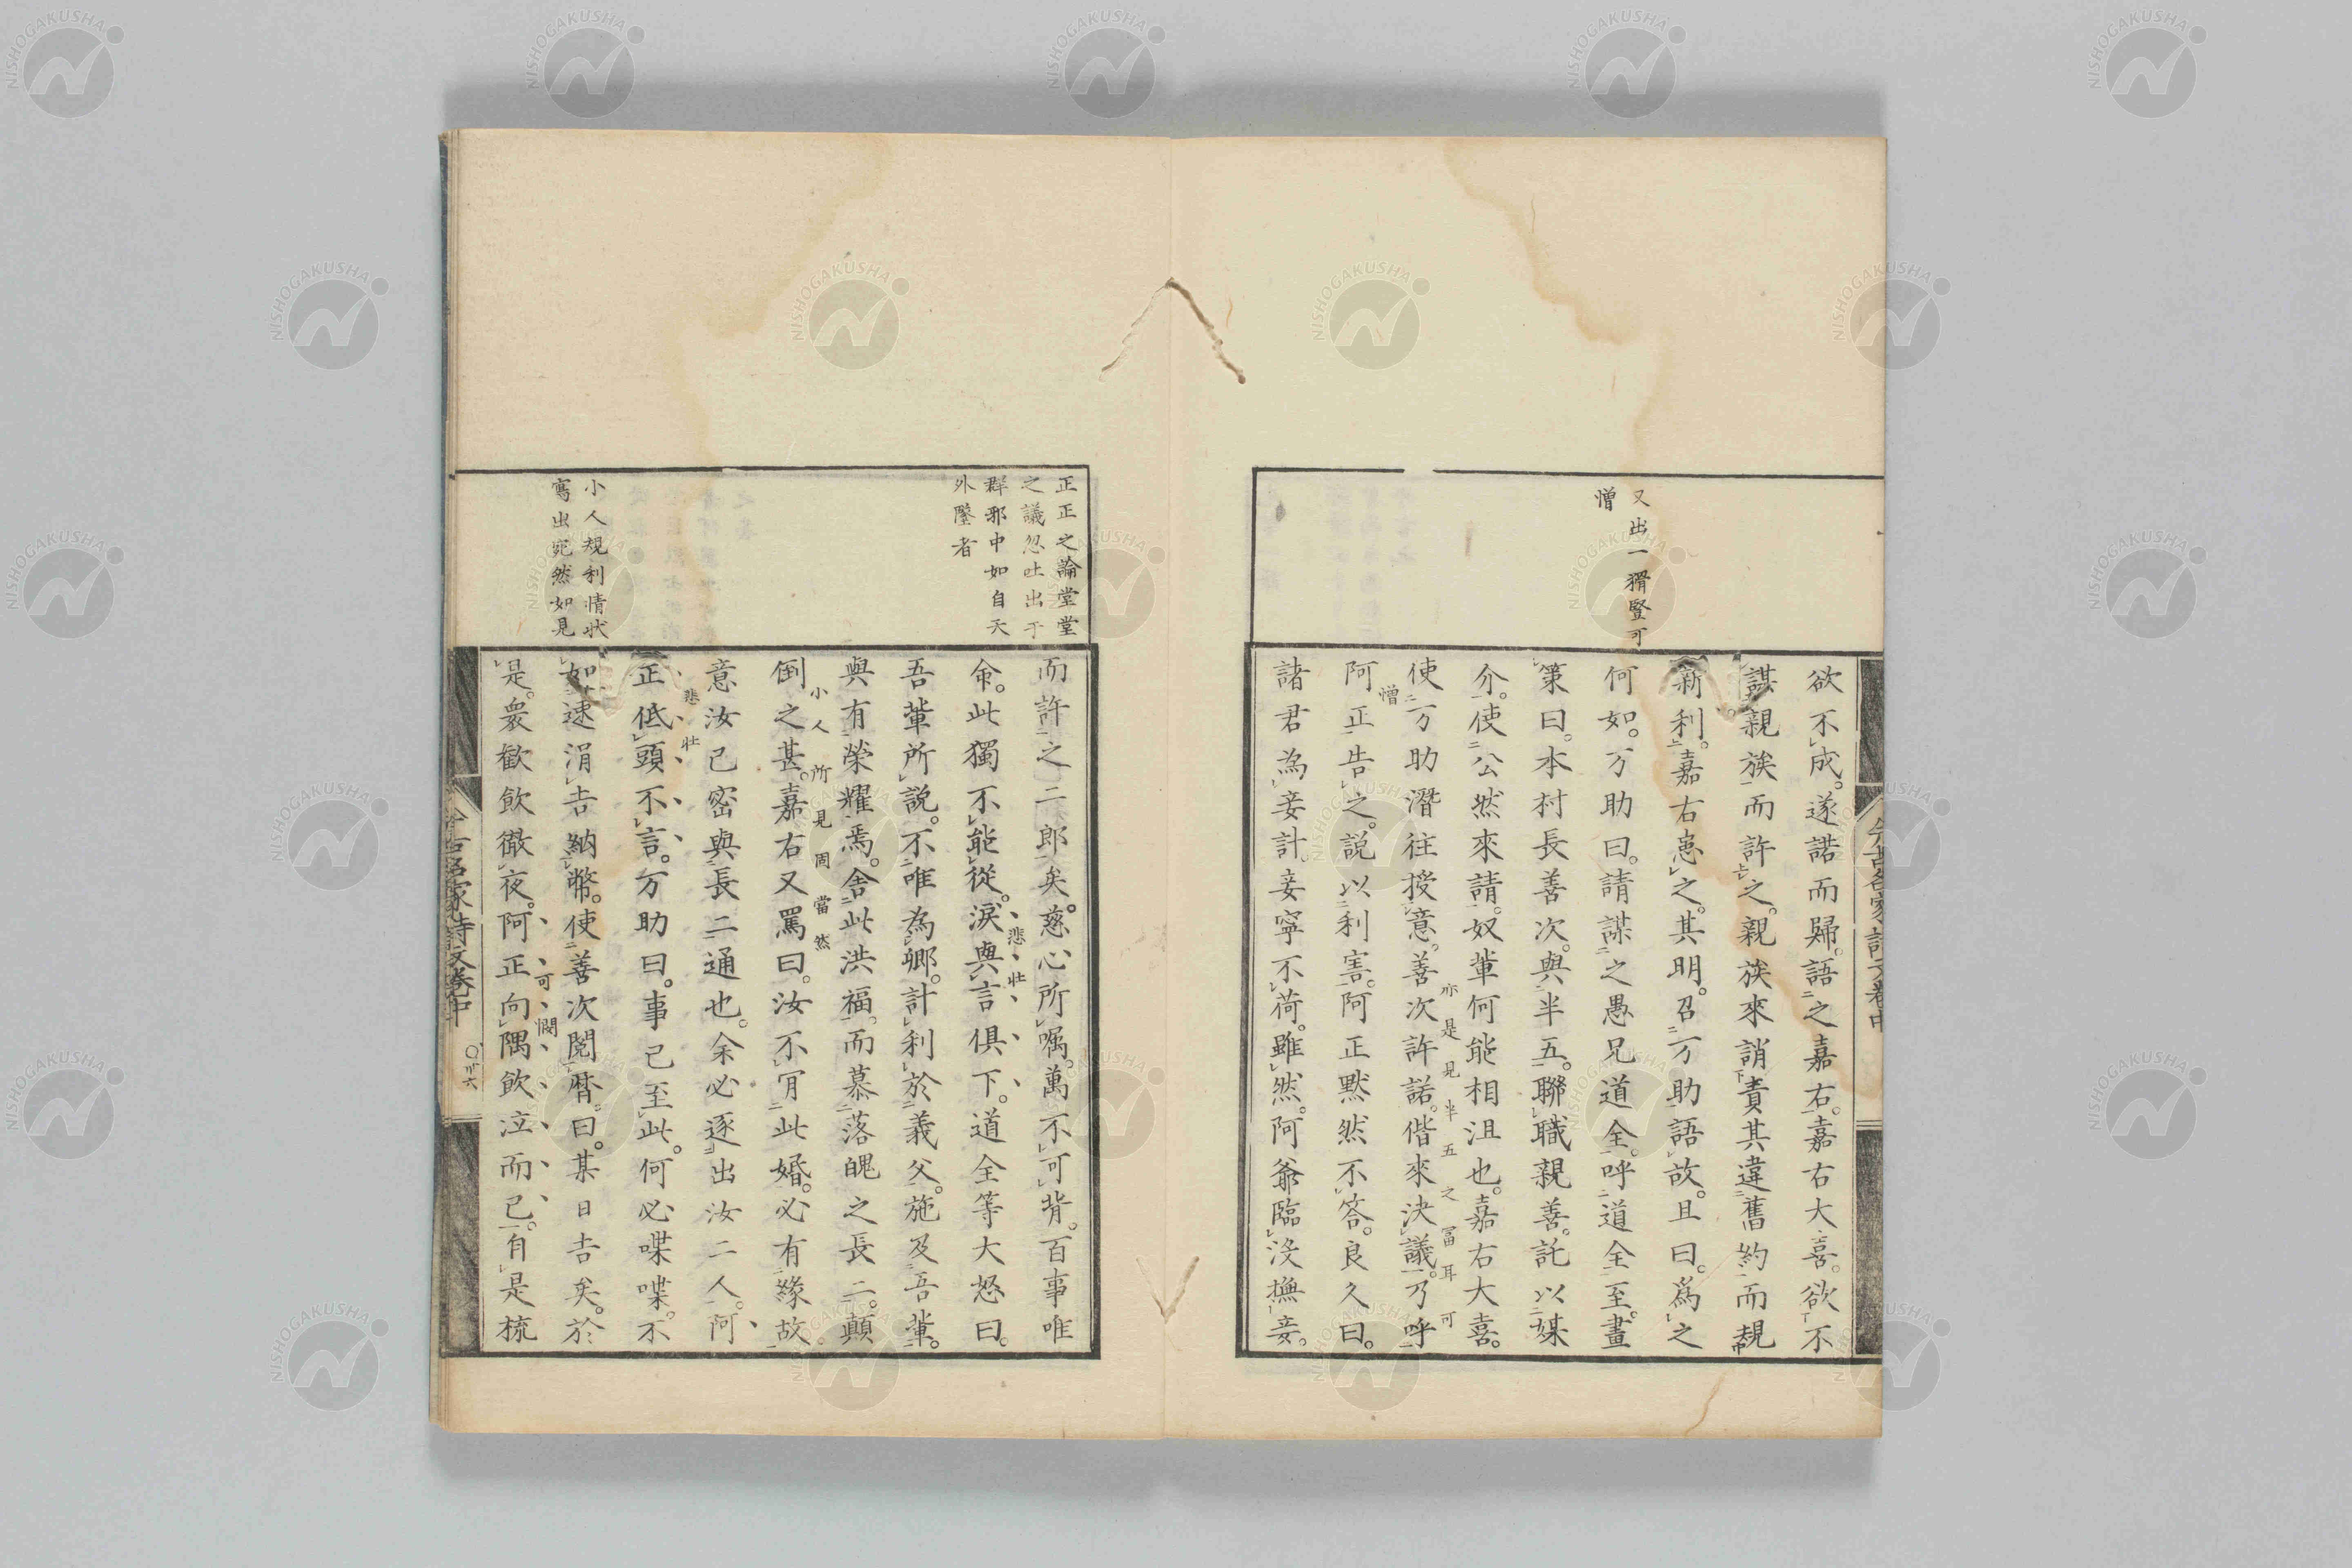 又出一猾豎可
憎
欲不成。遂諾而歸。語之嘉右。嘉右大喜。欲不
謀親族而許之。親族來誚責其違舊約而覬
新利。嘉右恚之。其明。召万助語故。且曰。爲之
何如。万助曰。請謀之愚兄道全。呼道全至。畫
策曰。本村長善次。與半五。聯職親善。託以媒
介。使公然來請。奴輩何能相沮也。嘉右大喜。
亦是見半五之冨耳可
使万助潛往授意。善次許諾。偕來決議。乃呼
憎
阿正告之。説以利害。阿正默然不答。良久曰。
諸君為妾計。妾寧不荷。雖然。阿爺臨没撫妾。
正正之論堂堂
之議忽吐出于
群邪中如自天
外墜者
小人規利情状
寫出宛然如見
而許之二郎矣。慈心所嘱。萬不可背。百事唯
命。此獨不能從。淚與言俱下。道全等大怒曰。
悲壮
吾輩所説。不唯為卿。計利於義父。施及吾輩。
與有榮耀焉。舍此洪福。而慕落魄之長二。顛
小人所見固當然
倒之甚。嘉右又罵曰。汝不肎此婚。必有緣故。
意汝已密與長二通也。余必逐出汝二人。阿
悲壮
正低頭不言。万助曰。事已至此。何必喋喋。不
如速涓吉納幣。使善次閲暦曰。某日吉矣。於
可憫
是。衆歓飲徹夜。阿正向隅飲泣而已。自是梳
今古名家詩文卷中
〇卅六